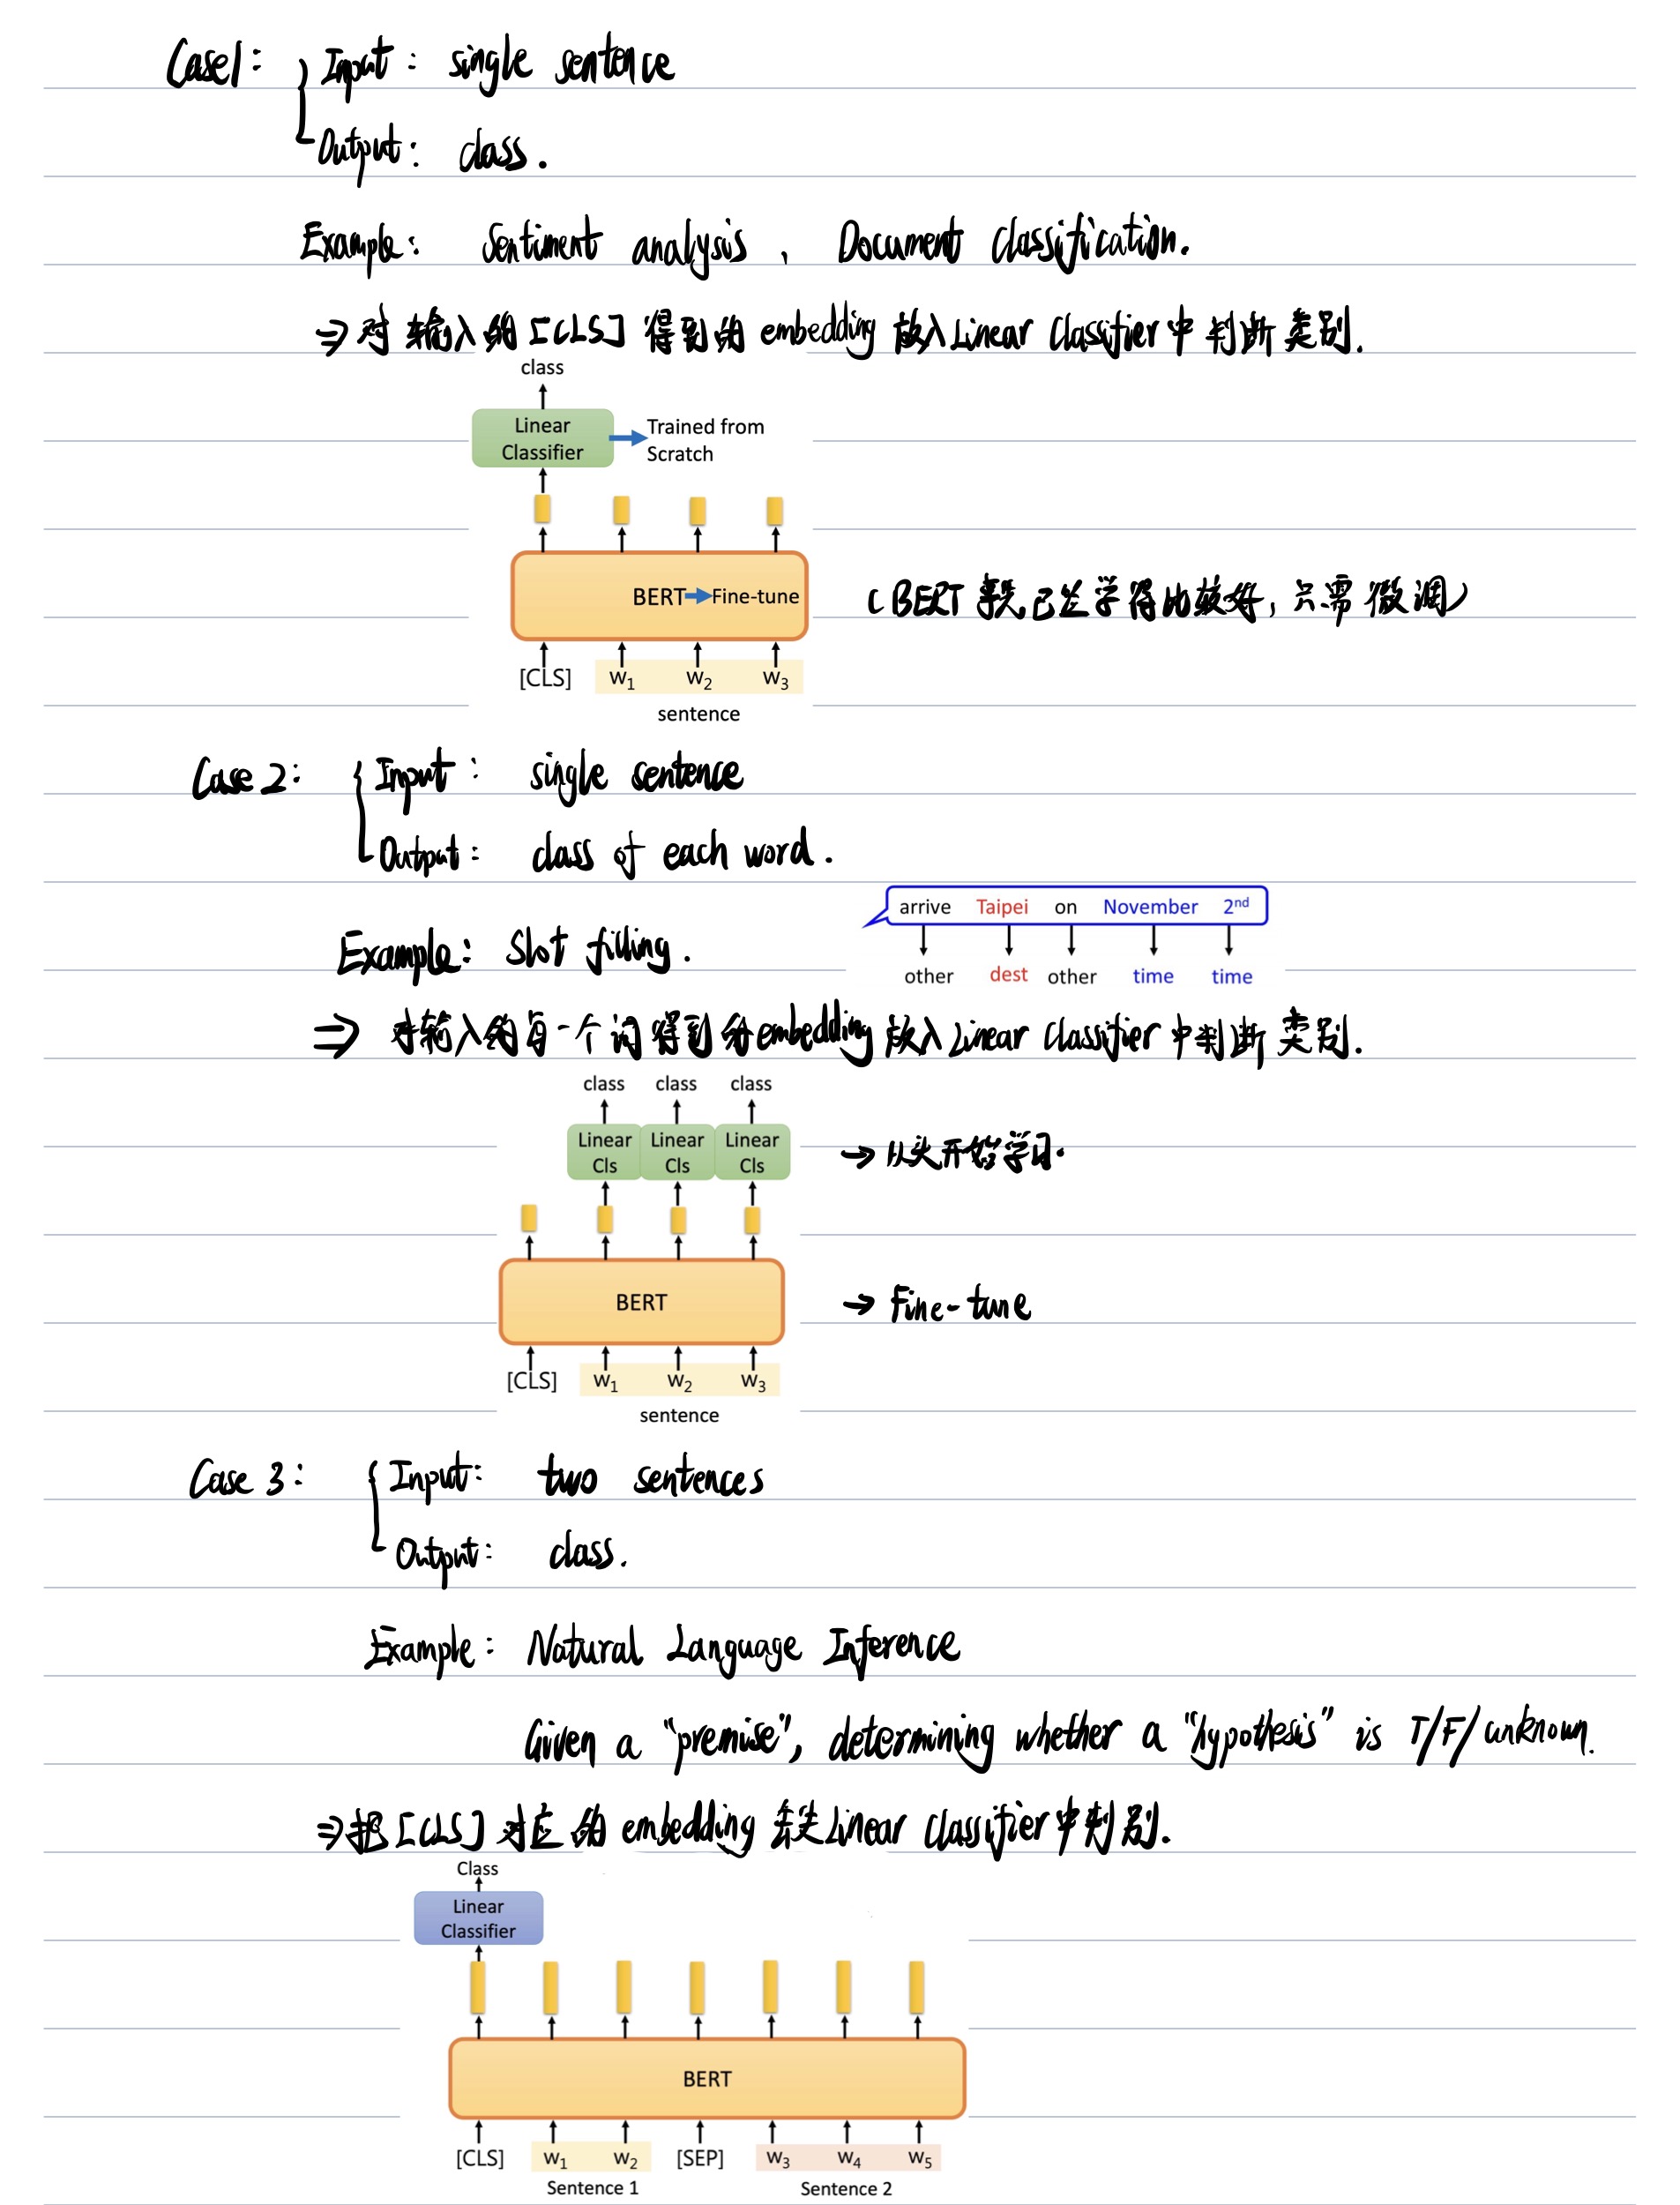 Case1: Input: single sentence
Output: class.
Example: Sentiment analysis、Document Classification.
⇒ 对输入的[CLS]得到的embedding放入Linear Classifier中判断类别.
class
Linear Classifier → Trained from Scratch
BERT → Fine-tune (BERT事先已经学得比较好,只需微调)
[CLS] w1 w2 w3
sentence
Case 2: Input: single sentence
Output: class of each word.
arrive Taipei on November 2nd
Example: Slot filling.
other dest other time time
⇒ 对输入的每一个词得到的embedding放入Linear Classifier中判断类别.
class class class
Linear Cls Linear Cls Linear Cls → 从头开始学习.
BERT → Fine-tune
[CLS] w1 w2 w3
sentence
Case 3: Input: two sentences
Output: class.
Example: Natural Language Inference
Given a "premise", determining whether a "hypothesis" is T/F/unknown.
⇒把[CLS]对应的embedding丢失Linear Classifier中判别.
Class
Linear Classifier
BERT
[CLS] w1 w2 [SEP] w3 w4 w5
Sentence 1 Sentence 2